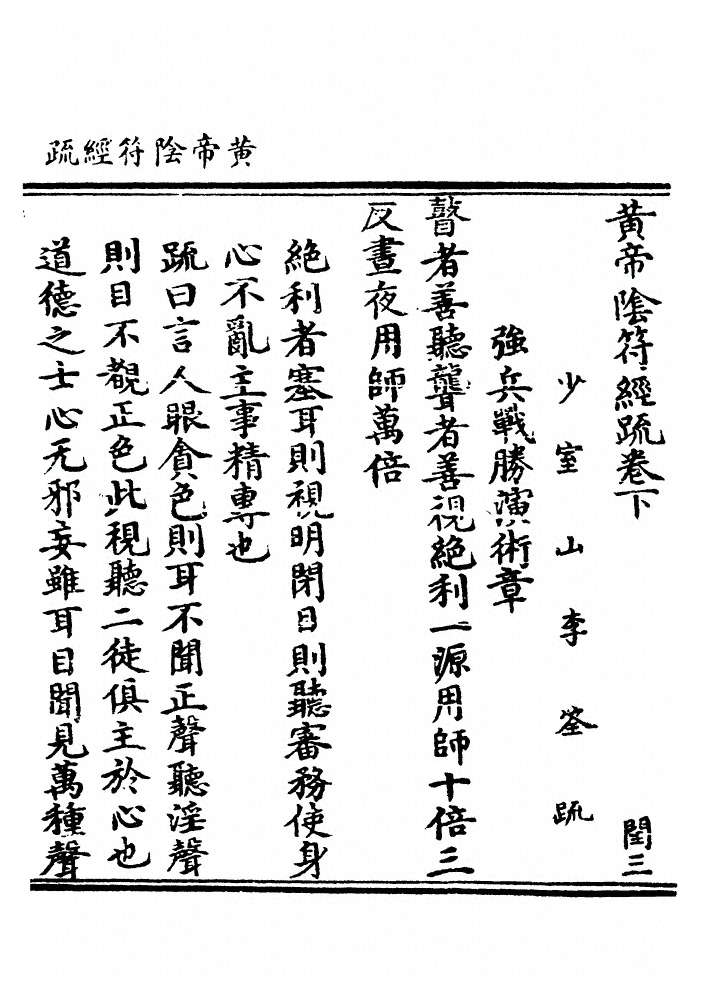 黄帝陰符經疏
黄帝陰符經疏卷下 閏三
少室山李筌疏
強兵戰勝演術章
瞽者善聽聾者善視絶利一源用師十倍三
反晝夜用師萬倍
絶利者塞耳則視明閉目則聽審務使身
心不亂主事精專也
疏曰言人眼貪色則耳不聞正聲聽淫聲
則目不覩正色此視聽二徒俱主於心也
道德之士心无邪妄雖耳目聞見萬種聲